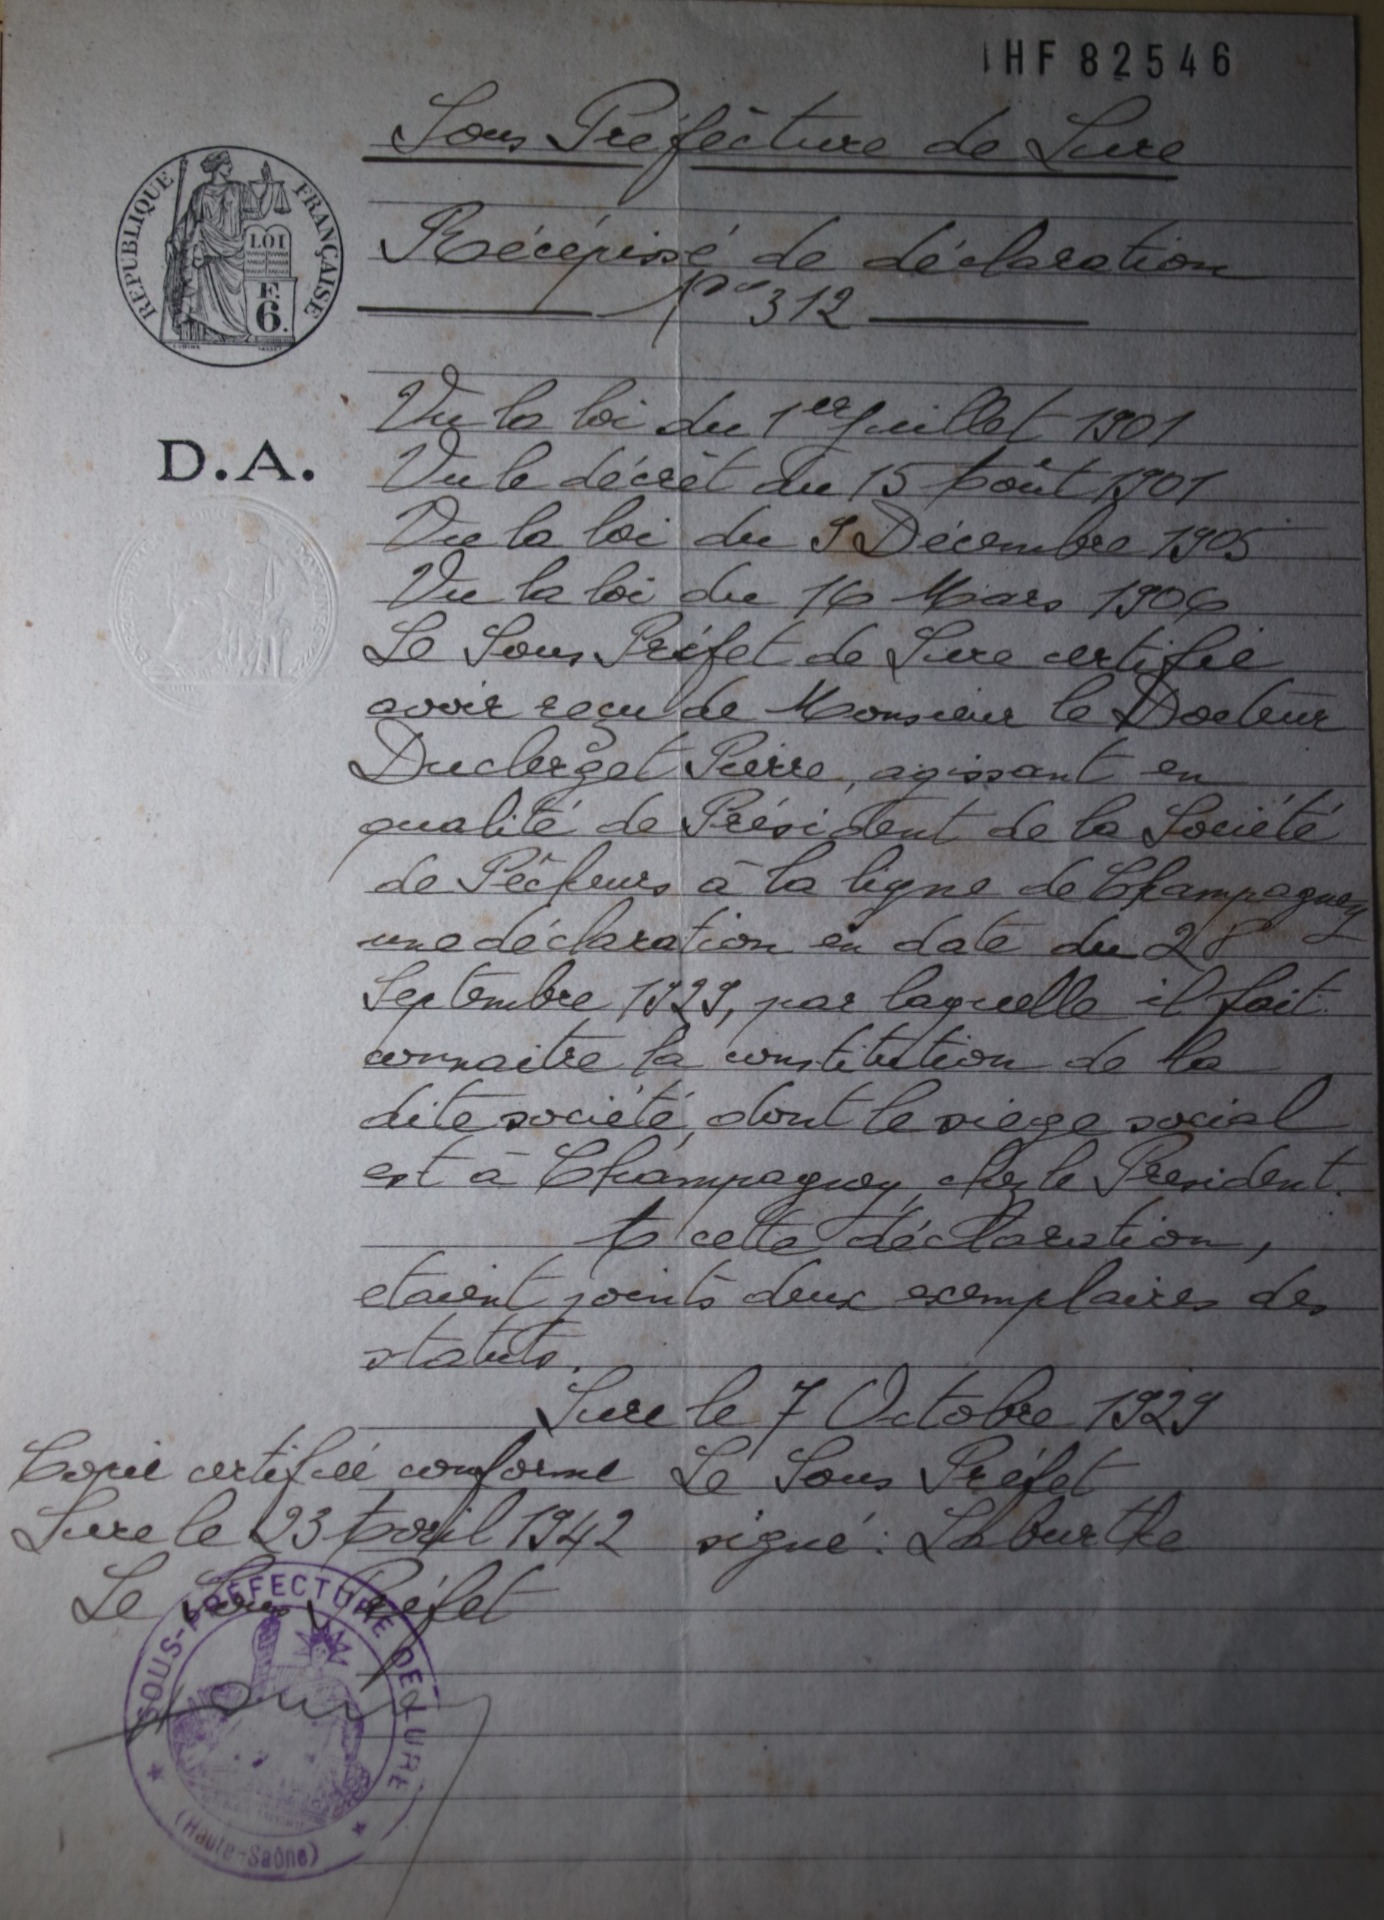 HF 82546
Sous Préfecture de Lure
RÉPUBLIQUE FRANÇAISE
LOI
F.
6.
Récépissé de déclaration
No 312
Vu la loi du 1er Juillet 1901
D.A.
Vu le décrèt du 15 Août 1901
Vu la loi du 9 Décembre 1905
Vu la loi du 16 Mars 1906
Le Sous Préfet de Lure certifie
avoir reçu de Monsieur le Docteur
Duclerget Pierre, agissant en
qualité de Président de la Société
de Pêcheurs à la ligne de Champagney
une déclaration en date du 28
Septembre 1929, par laquelle il fait
connaitre la constitution de la
dite société, dont le siege social
est à Champagney, chez le President.
A cette déclaration,
etaient joints deux exemplaires des
statuts.
Lure le 7 Octobre 1929
Copie certifiée conforme Le Sous Préfet
Lure le 23 Avril 1942 signé : Laburthe
Le Sous Préfet
SOUS-PRÉFECTURE DE LURE
(Haute-Saône)